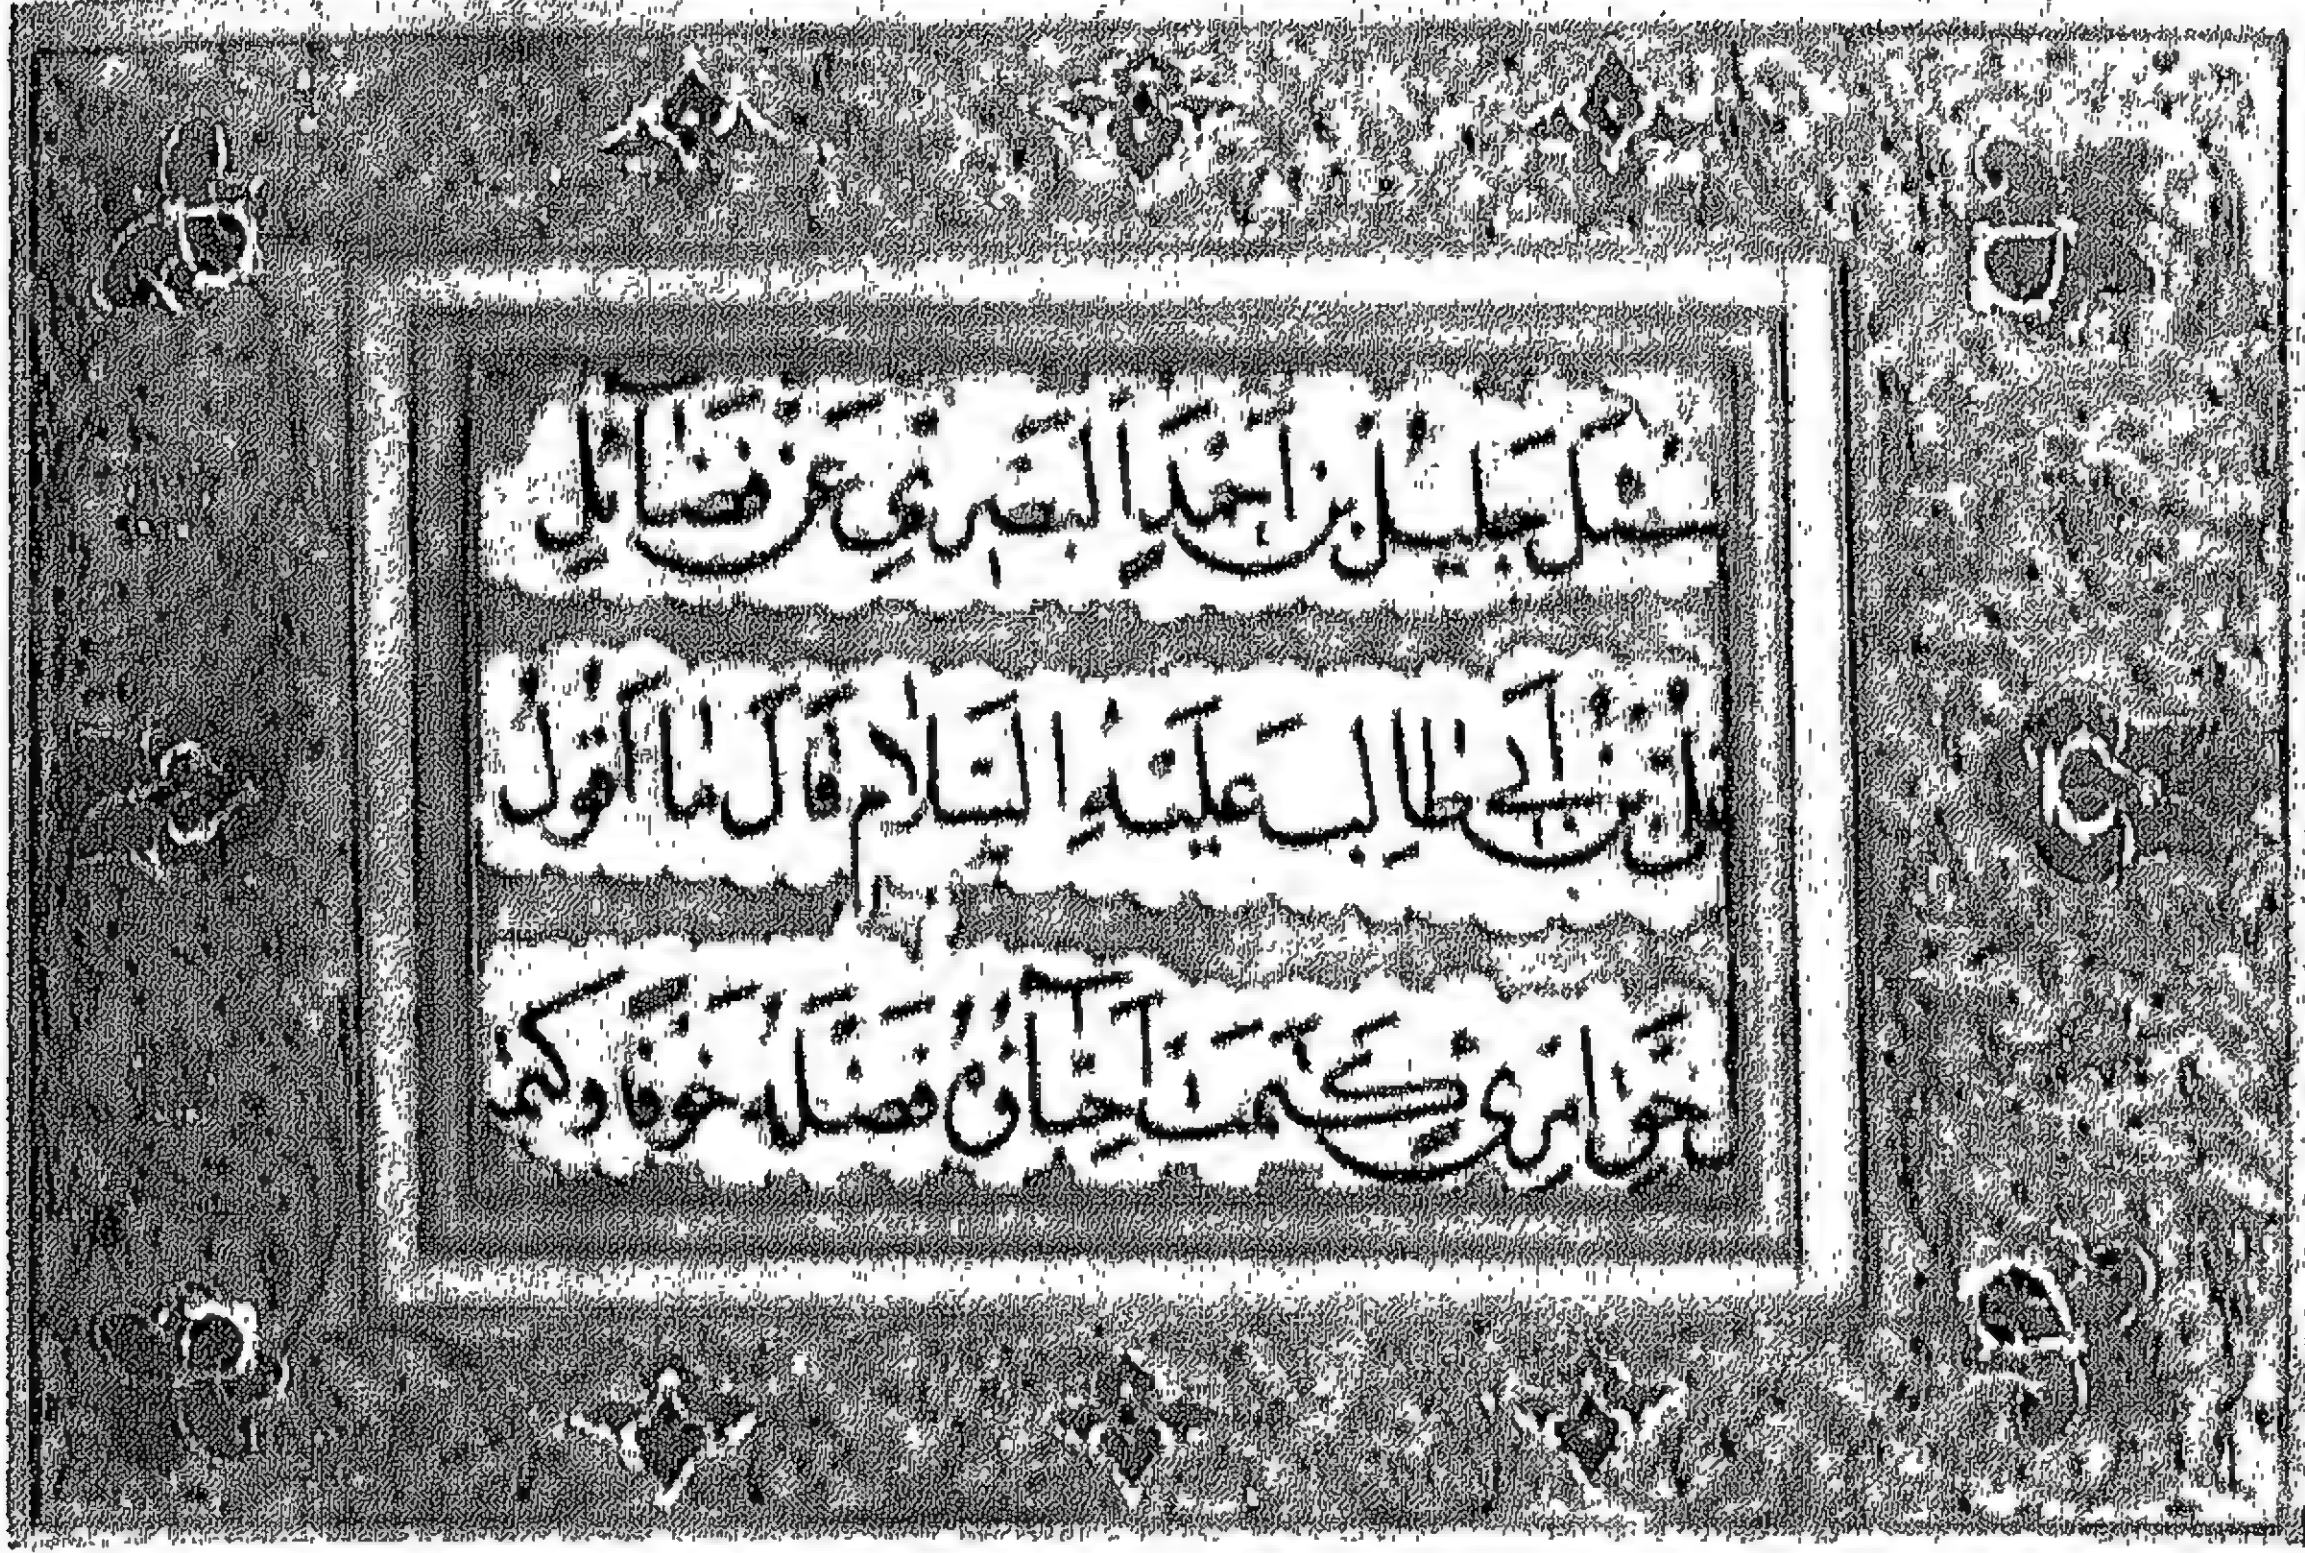 سئل خليل بن احمد البصري عن فضائل
علي بن ابي طالب عليه السلام قال ما اقول
في حق امرئ كتمت احباؤه فضله خوفا وكتم